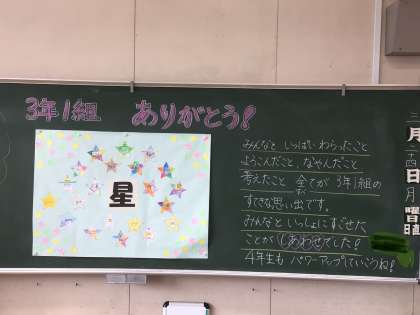 3年1組 ありがとう!
星
みんなと いっぱいわらったこと
よろこんだこと なやんだこと
考えたこと 全てが 3年1組の
すてきな思い出です。
みんなといっしょにすごせた
ことが しあわせでした!
4年生も パワーアップしていこうね!
三月二十四日
月曜
日直